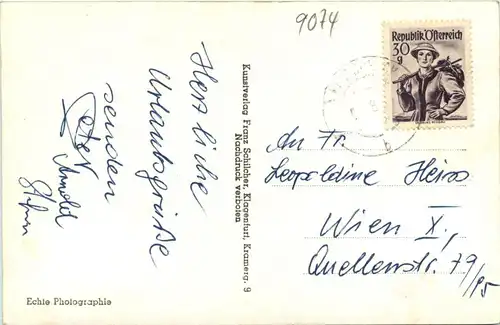 9074
Republik Österreich
30
g
Herzliche
Urlaubsgrüße
senden
Peter
Arnold
Kunstverlag Franz Schilcher, Klagenfurt, Kramerg. 9
Nachdruck verboten
An Fr.
Leopoldine Heiss
Wien X.,
Quellenstr. 79/95
b
Echte Photographie